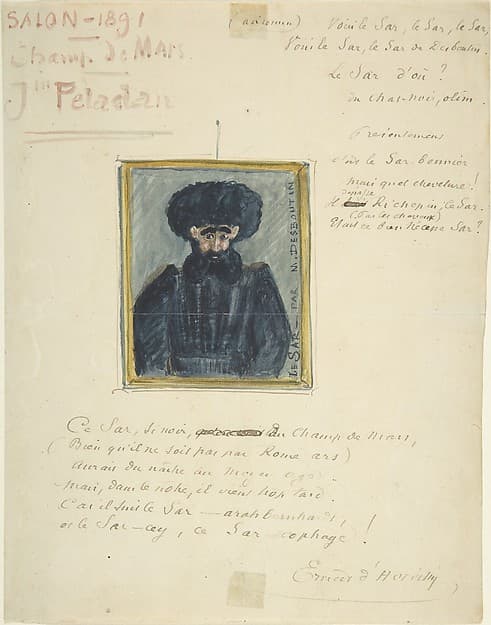 SALON - 1891
Champ de Mars
Jin Peladan
Voici le Sar, le Sar, le Sar,
Voici le Sar, le Sar de Desboutin.
Le Sar d'où ?
du chat-noir, olim.
le Sar
mais quel chevelure !
Richepin, le Sar.
(par les cheveux)
Sar ?
LE SAR - PAR M. DESBOUTIN
Ce Sar, si noir, du Champ de Mars,
(Bien qu'il ne soit pas par Rome ars)
Aurait dû naître au moyen
mais, dans le nôtre, il vient trop tard.
Car il suit le Sar — arahbernhardt, !
et le Sar - cey, ce Sar cophage !
Ernest d'Hervilly